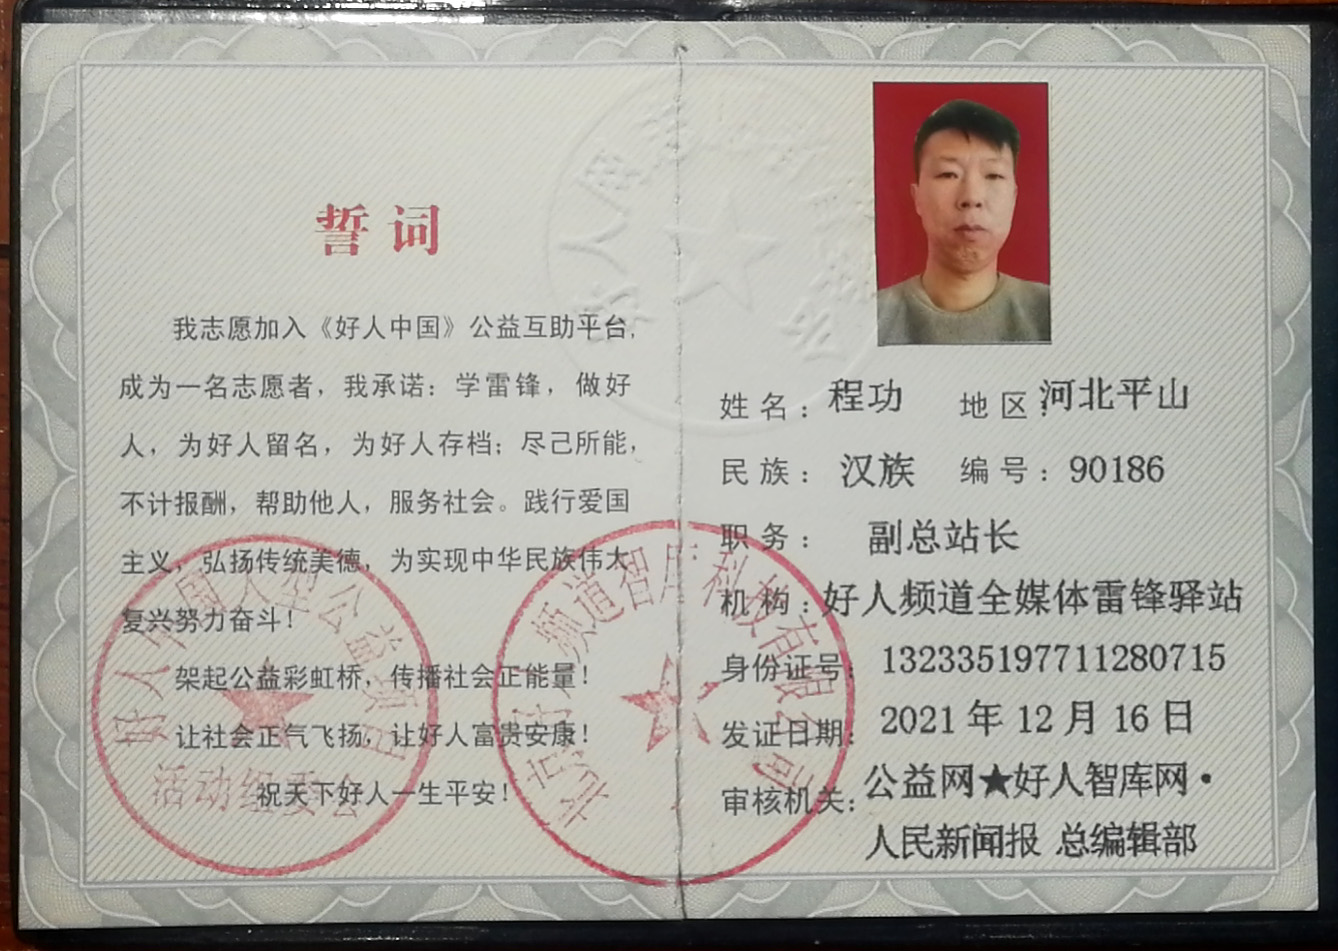 誓词
我志愿加入《好人中国》公益互助平台,
成为一名志愿者，我承诺：学雷锋，做好
人，为好人留名，为好人存档；尽己所能,
不计报酬，帮助他人，服务社会。践行爱国
主义，弘扬传统美德，为实现中华民族伟大
复兴努力奋斗！
架起公益彩虹桥，传播社会正能量！
让社会正气飞扬，让好人富贵安康！
祝天下好人一生平安！
活动组委会
姓名：程功 地区：河北平山
民族：汉族 编号：90186
职务：副总站长
机构：好人频道全媒体雷锋驿站
身份证号：132335197711280715
发证日期：2021年12月16日
审核机关：公益网★好人智库网·
人民新闻报 总编辑部